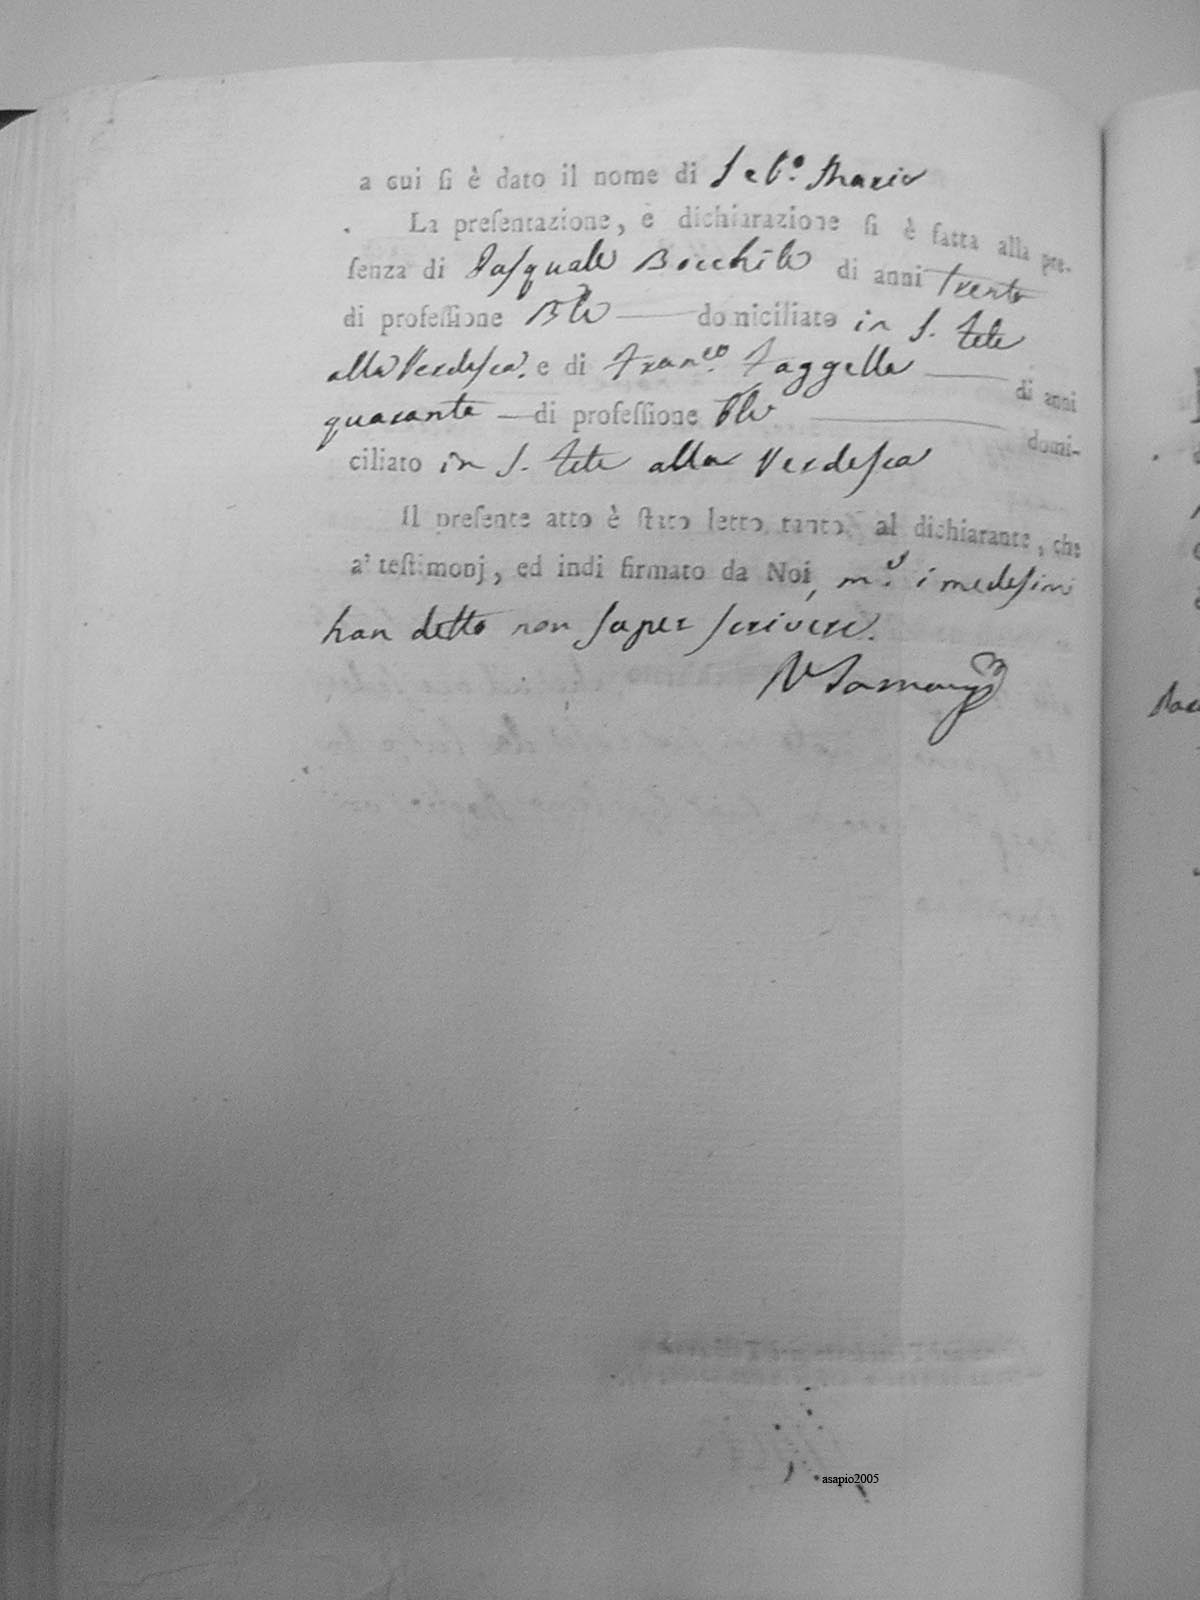 a cui ſi è dato il nome di Seb.º Maria
La preſentazione, e dichiarazione ſi è fatta alla pre-
ſenza di Paſquale Bocchile di anni Trenta
di profeſſione domiciliato in S. Tete
alla Verdeſca. e di Fran.co Taggella di anni
quaranta di profeſſione domi-
ciliato in S. Tete alla Verdeſca
Il preſente atto è ſtato letto tanto al dichiarante, che
a' teſtimonj, ed indi firmato da Noi, i medeſimi
han detto non ſaper ſcrivere.
asapio2005